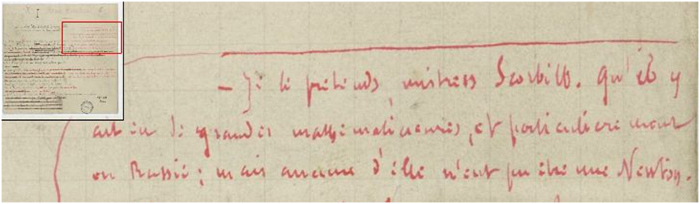 — Je le prétends, mistress Scorbitt. Qu'il y
ait eu de grandes mathématiciennes, et particulièrement
en Russie ; mais aucune d'elle n'eut pu être une Newton.